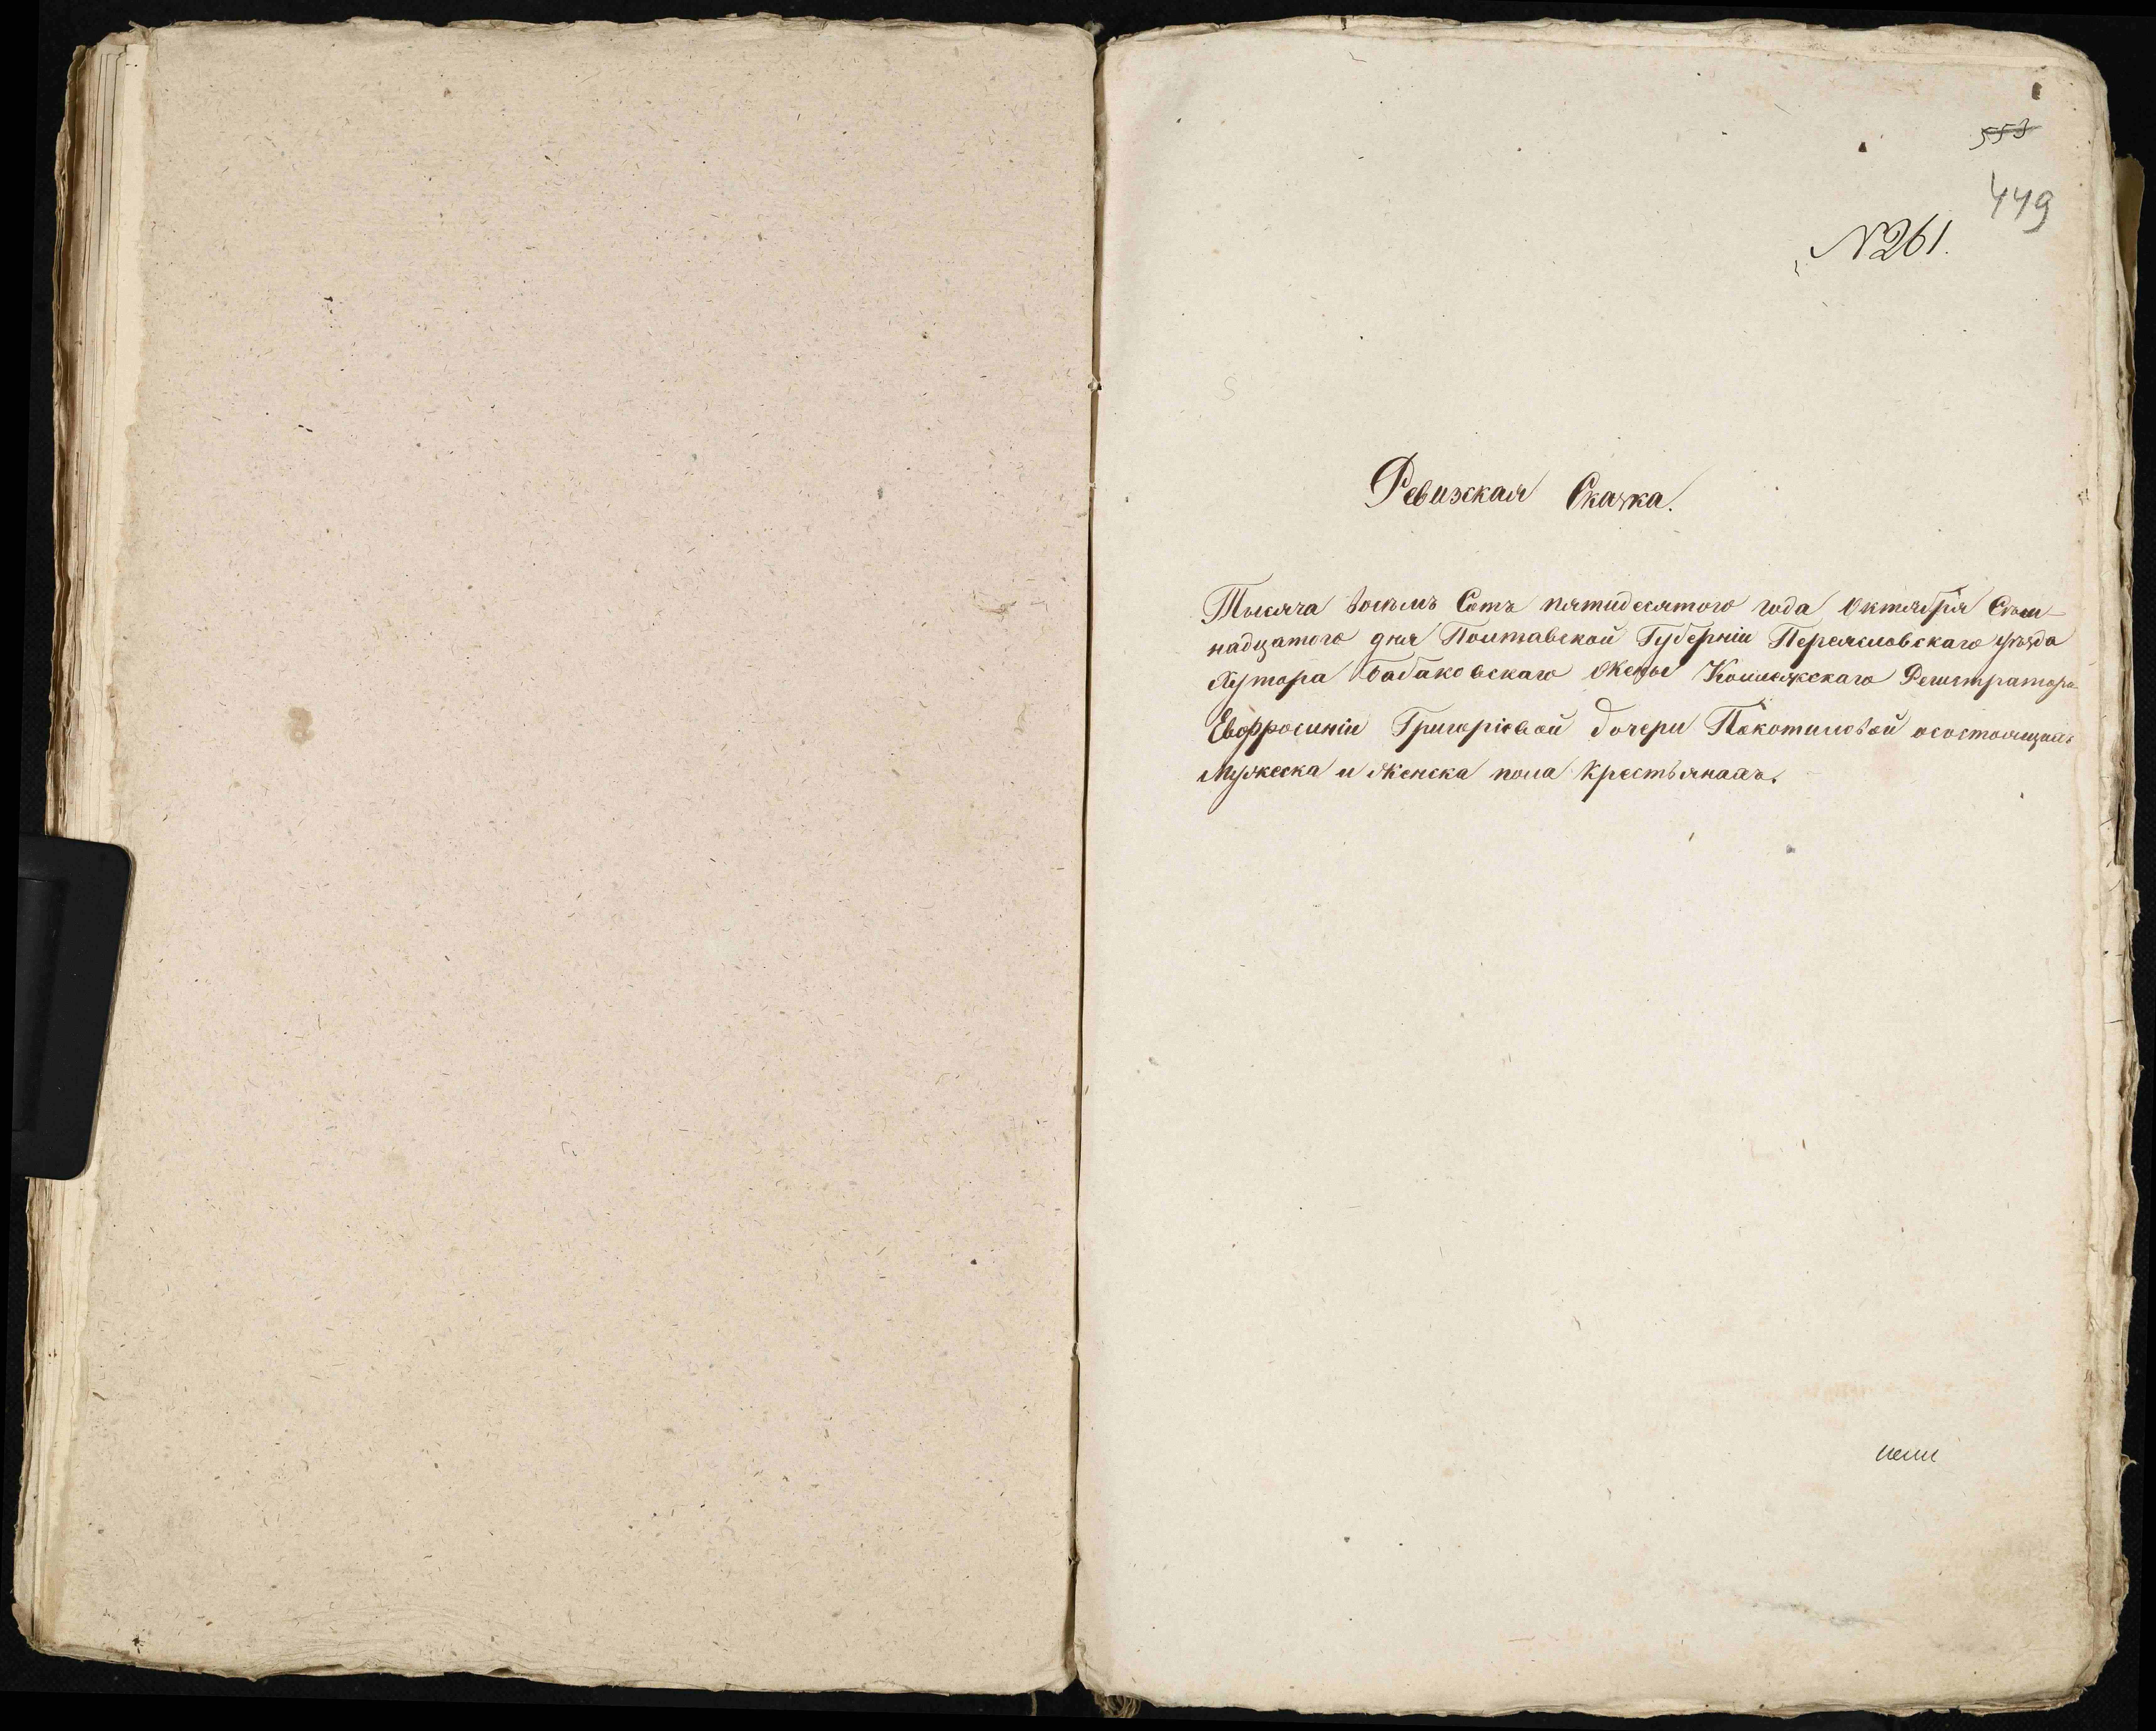 553
449
№ 261.
Ревизская Сказка.
Тысяча восемь Сотъ пятидесятого года Октября Семи-
надцатого дня Полтавской Губерніи Переяславскаго уѣзда
Хутора Бабаковскаго Жены Коллежскаго Регистратора
Евфросиніи Григоріевой дочери Покотиловой осостоящихъ
Мужеска и женска пола Крестьянахъ.